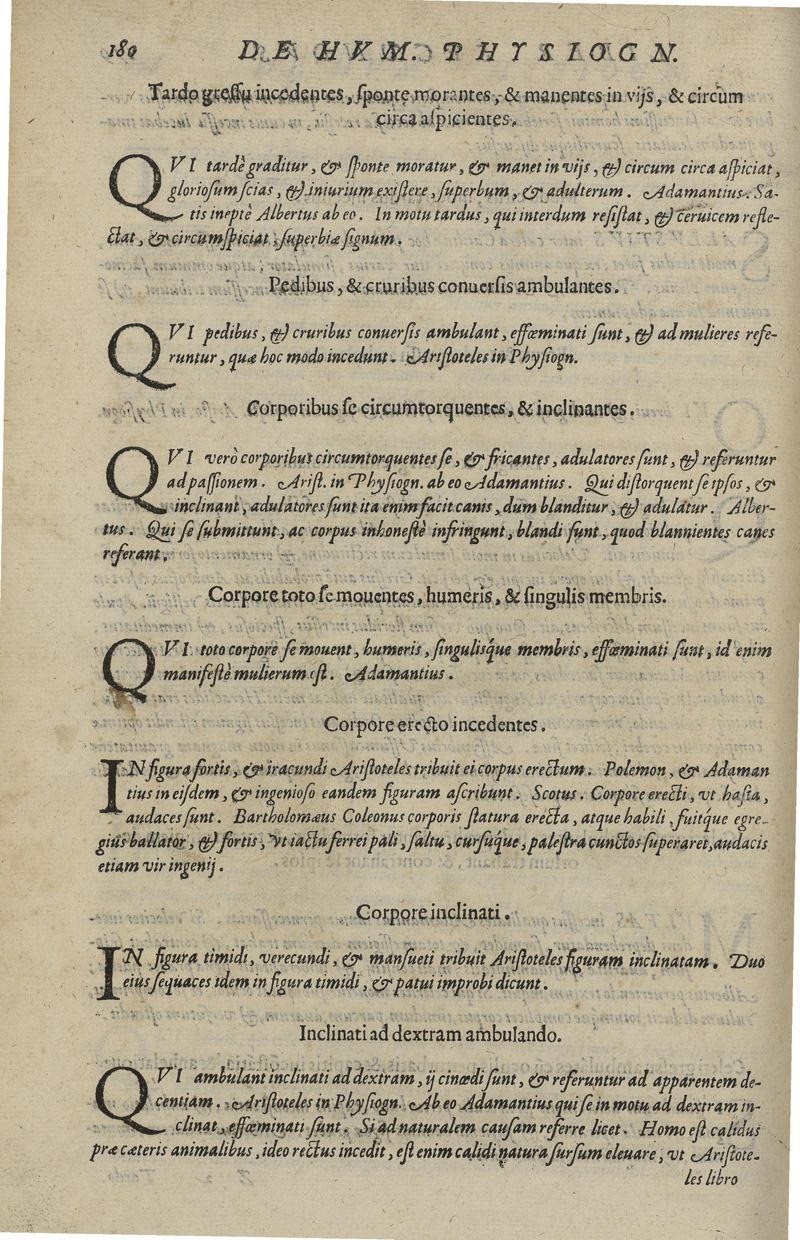 180 DE HVM. PHYSIOGN.
Tardo gressu incedentes, sponte morantes, & manentes in vijs, & circùm
circa aspicientes.
QVI tardè graditur, & sponte moratur, & manet in vijs, & circum circa aspiciat,
gloriosum scias, & iniurium existere, superbum, & adulterum. Adamantius. Sa-
tis ineptè Albertus ab eo. In motu tardus, qui interdum resistat, & ceruicem refle-
ctat, & circumspiciat, superbiæ signum.
Pedibus, & cruribus conuersis ambulantes.
QVI pedibus, & cruribus conuersis ambulant, effœminati sunt, & ad mulieres refe-
runtur, quæ hoc modo incedunt. Aristoteles in Physiogn.
Corporibus se circumtorquentes, & inclinantes.
QVI verò corporibus circumtorquentes se, & fricantes, adulatores sunt, & referuntur
ad passionem. Arist. in Physiogn. ab eo Adamantius. Qui distorquent se ipsos, &
inclinant, adulatores sunt ita enim facit canis, dum blanditur, & adulatur. Alber-
tus. Qui se submittunt, ac corpus inhonestè infringunt, blandi sunt, quod blannientes canes
referant.
Corpore toto se mouentes, humeris, & singulis membris.
QVI toto corpore se mouent, humeris, singulisq́ue membris, effœminati sunt, id enim
manifestè mulierum est. Adamantius.
Corpore erecto incedentes.
IN figura fortis, & iracundi Aristoteles tribuit ei corpus erectum. Polemon, & Adaman
tius in eisdem, & ingenioso eandem figuram ascribunt. Scotus. Corpore erecti, vt hasta,
audaces sunt. Bartholomæus Coleonus corporis statura erecta, atque habili, fuitq́ue egre-
gius ballator, & fortis, vt iactu ferrei pali, saltu, cursuq́ue, palestra cunctos superaret, audacis
etiam vir ingenij.
Corpore inclinati.
IN figura timidi, verecundi, & mansueti tribuit Aristoteles figuram inclinatam. Duo
eius sequaces idem in figura timidi, & patui improbi dicunt.
Inclinati ad dextram ambulando.
QVI ambulant inclinati ad dextram, ij cinœdi sunt, & referuntur ad apparentem de-
centiam. Aristoteles in Physiogn. Ab eo Adamantius qui se in motu ad dextram in-
clinat, effœminati sunt. Si ad naturalem causam referre licet. Homo est calidus
præ cæteris animalibus, ideo rectus incedit, est enim calidi natura sursum eleuare, vt Aristote-
les libro